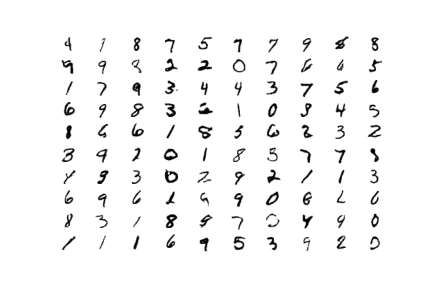 4 1 8 7 5 7 7 9 8 8
9 9 8 2 2 0 7 6 6 5
1 7 9 3 4 4 3 7 5 6
6 9 8 3 6 1 0 3 4 5
1 6 6 1 8 5 6 2 3 2
3 9 2 0 1 8 5 7 7 8
4 9 3 0 2 9 2 1 1 3
6 9 6 1 9 9 0 8 6 6
8 3 1 8 5 7 0 4 9 0
1 1 1 6 9 5 3 9 2 0